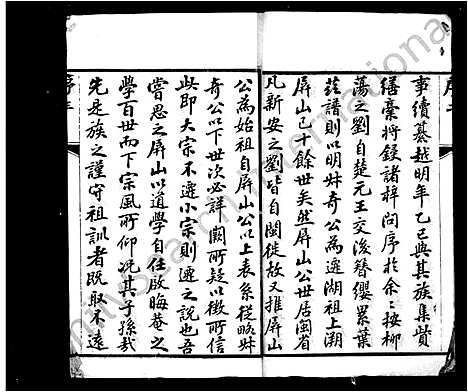 序二
事續纂越明年乙巳與其族集貲
繕棄將錄諸梓问序於余余按柳
蕩之劉自楚元王交後簪纓累葉
茲譜則以明妹奇公為遷湖祖上溯
屏山已十餘世矣然屏山公世居閩省
凡新安之劉皆自閩徙故又推屏山
公為始祖自屏山公以上表系從略妹
奇公以下世次必詳闕所疑以徵所信
此即大宗不遷小宗則遷之說也吾
嘗思之屏山以道學自任啟晦菴之
學百世而下宗風所仰况其子孫哉
先是族之謹守祖訓者既取不遠
序三